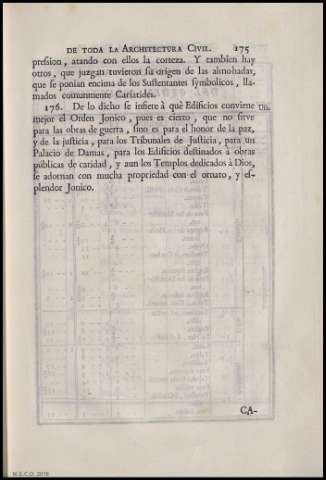 DE TODA LA ARCHITECTURA CIVIL. 175
presion, atando con ellos la corteza. Y tambien hay
otros, que juzgan tuvieron su origen de las almohadas,
que se ponían encima de los Sustentantes symbolicos, lla-
mados comunmente Cariatides.
176. De lo dicho se infiere à què Edificios convime Un.
mejor el Orden Jonico, pues es cierto, que no sirve
para las obras de guerra, sino es para el honor de la paz,
y de la justicia, para los Tribunales de Justicia, para un
Palacio de Damas, para los Edificios destinados à obras
públicas de caridad, y aun los Templos dedicados à Dios,
se adornan con mucha propriedad con el ornato, y es-
plendor Jonico.
CA-
M.E.C.D. 2016